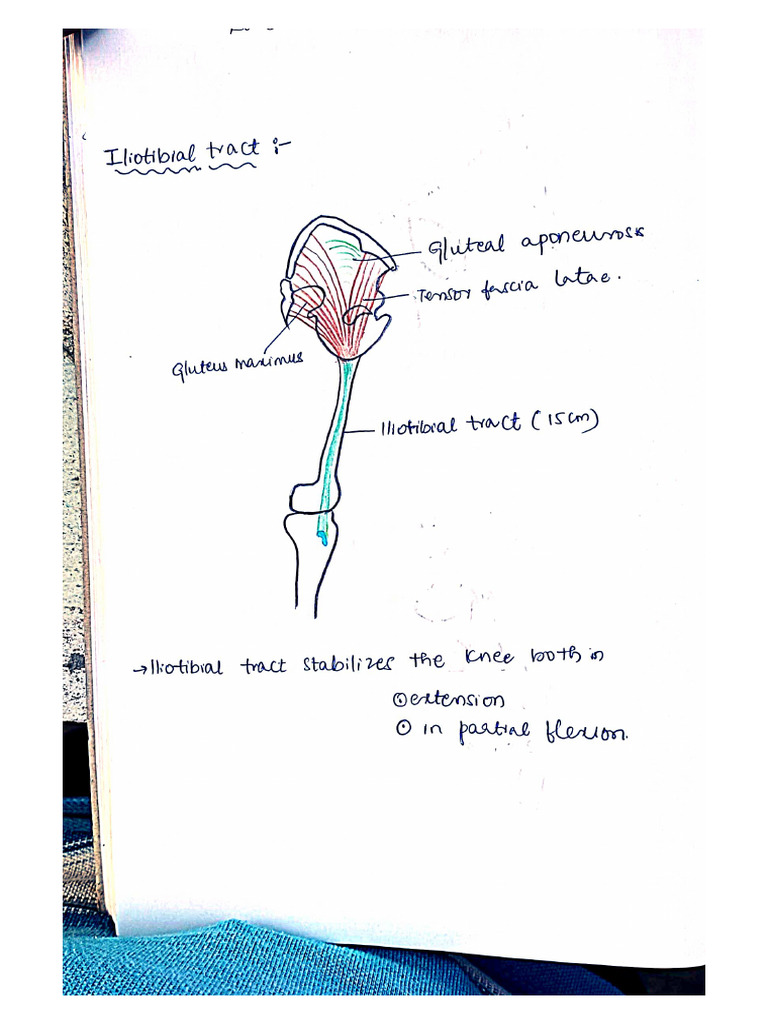 Iliotibial tract :-
Gluteal aponeurosis
Tensor fascia latae.
Gluteus maximus
Iliotibial tract (15cm)
→Iliotibial tract stabilizes the knee both in
⊙extension
⊙ in partial flexion.